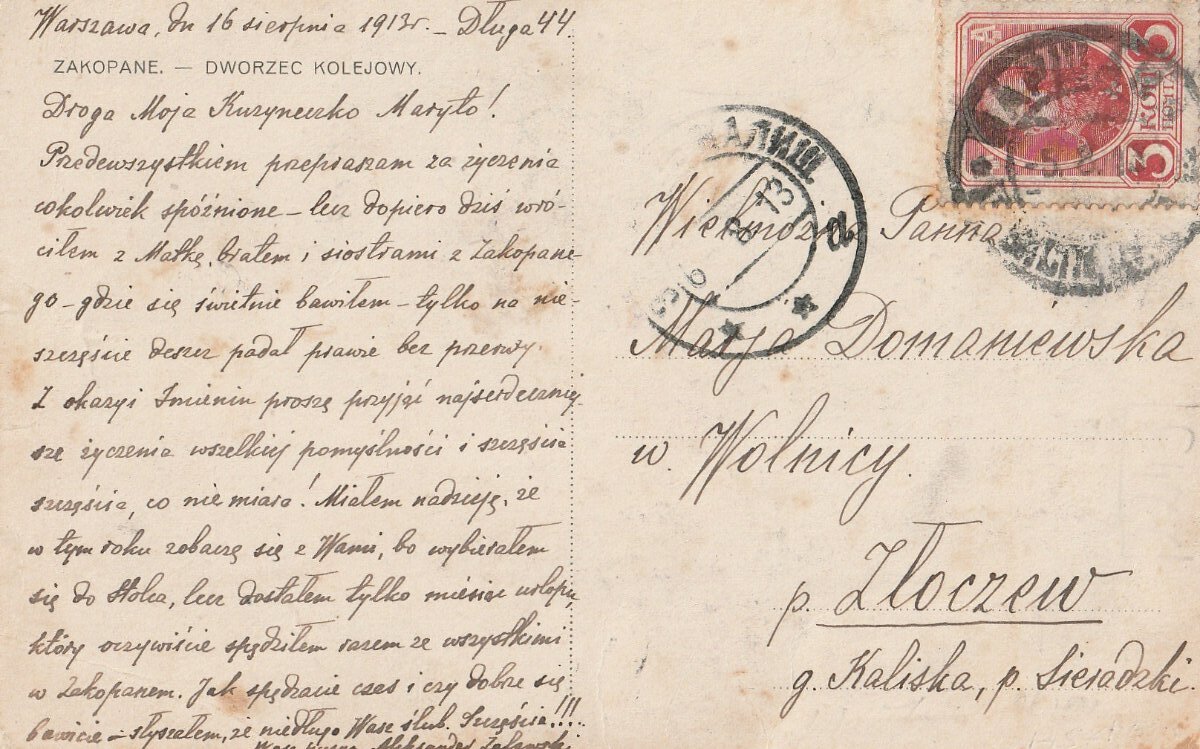 Warszawa, dn 16 sierpnia 1913r. – Długa 44.
ZAKOPANE. — DWORZEC KOLEJOWY.
Droga Moja Kuzyneczko Maryło!
Przedewszystkiem przepraszam za życzenia
cokolwiek spóźnione – lecz dopiero dziś wró-
ciłem z Matką, bratem i siostrami z Zakopane-
go – gdzie się świetnie bawiłem – tylko na nie-
szczęście deszcz padał prawie bez przerwy.
Z okazyi Imienin proszę przyjąć najserdeczniej-
sze życzenia wszelkiej pomyślności i szczęścia
szczęścia, co niemiara! Miałem nadzieję, że
w tym roku zobaczę się z Wami, bo wybierałem
się do Stolca, lecz dostałem tylko miesiąc urlopu,
który oczywiście spędziłem razem ze wszystkimi
w Zakopanem. Jak spędzacie czas i czy dobrze się
bawicie – słyszałem, że niedługo Wasz ślub. Szczęścia!!!
Aleksander Zalewski
3 КОП
3
КАЛИШ
8 13
а
Wielmożna Panna
Marja Domaniewska
w. Wolnicy.
p. Złoczew
g. Kaliska, p. Sieradzki